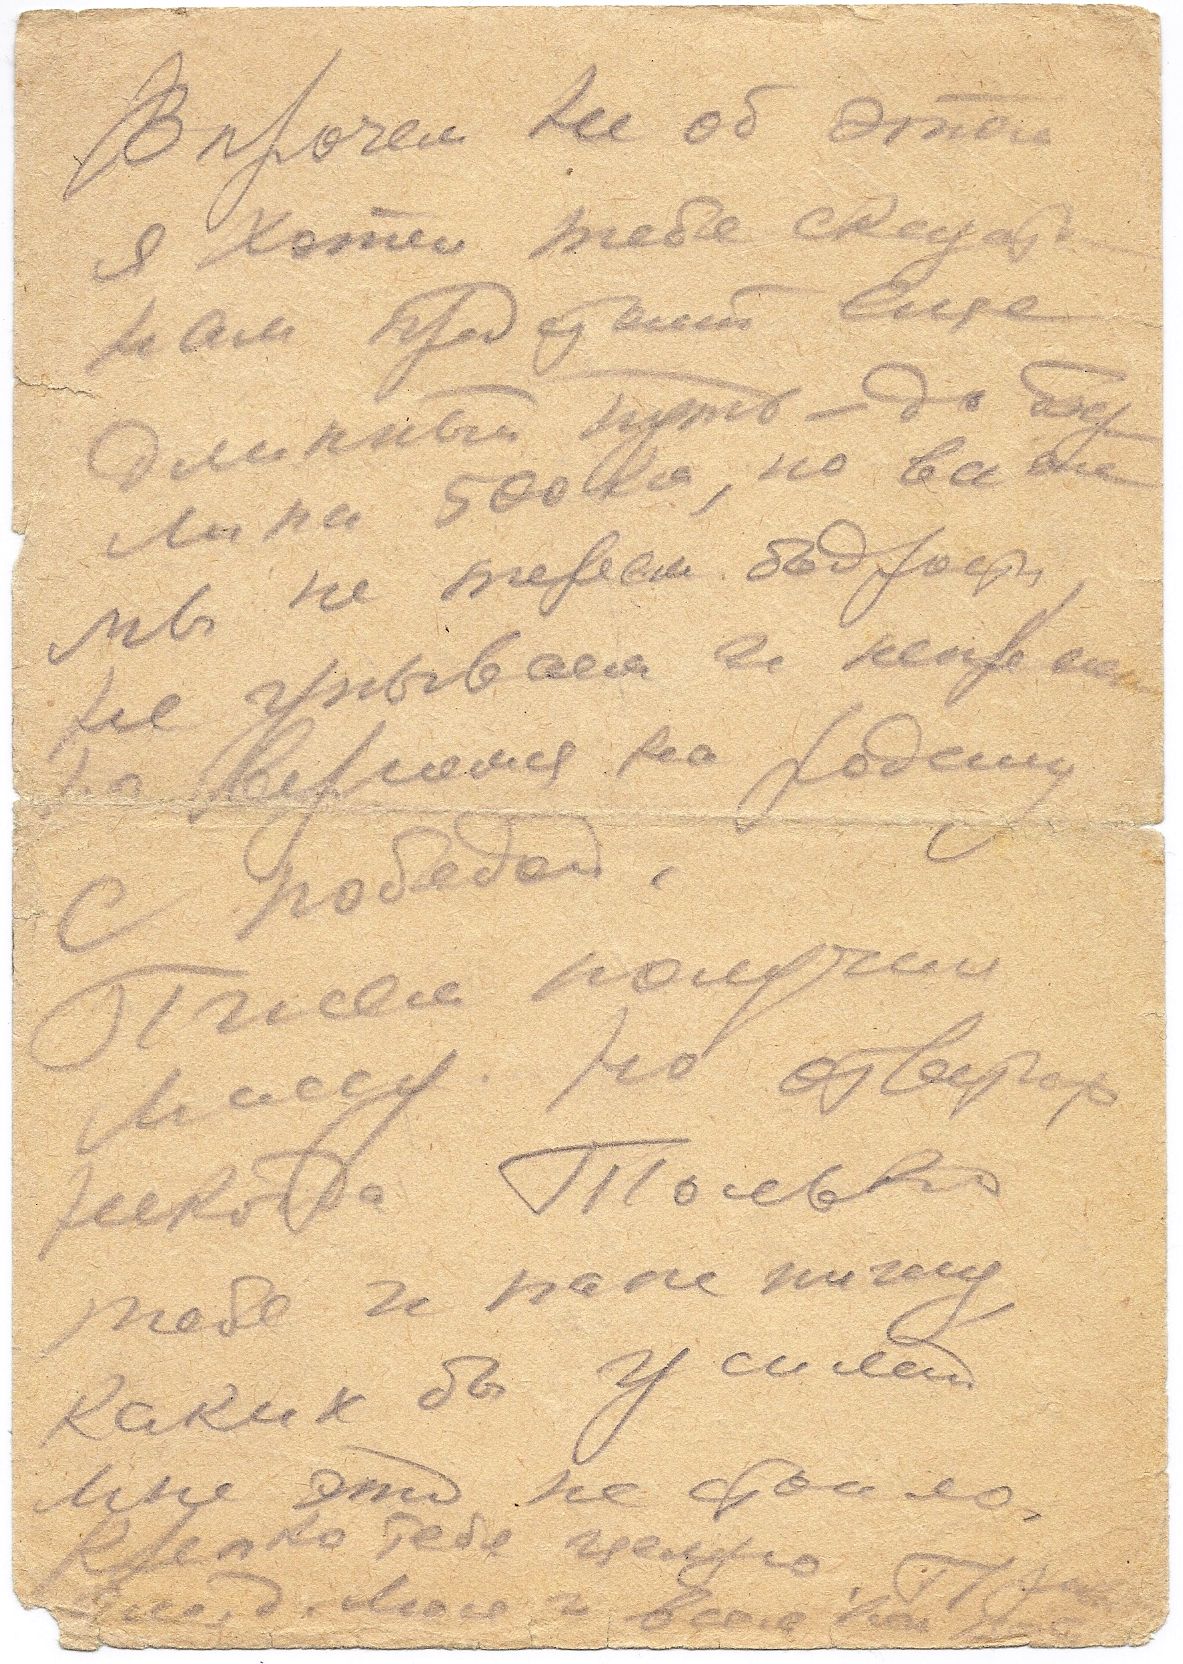 Впрочем не об этом
я хотел тебе сказать
нам предстоит еще
длинный путь – до Бер
лина 500 км, но
мы не теряем бодрости,
не унываем и непремен
но вернемся на родину
с победой.
Писем получил
массу. Но отвечать
некогда Только
тебе и папе пишу
каких бы усилий
мне это не стоило.
Крепко тебя целую.